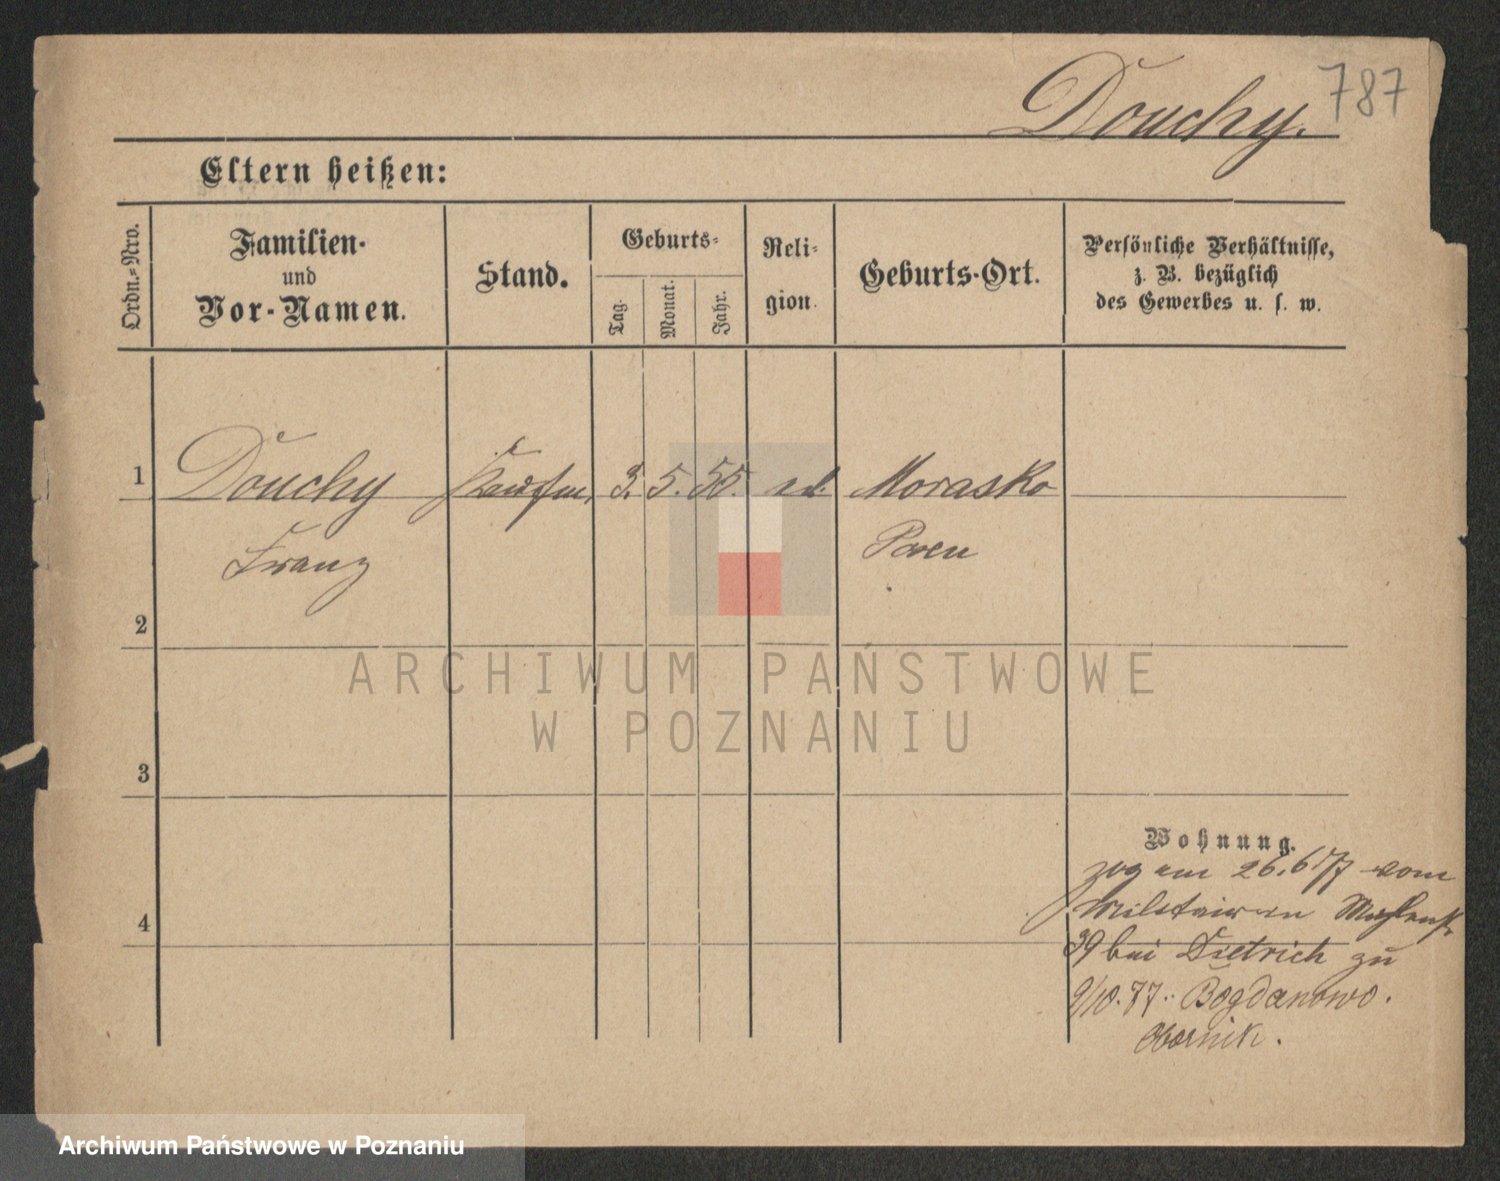 787
Douchy.
Eltern heißen:
Ordn.-Nro.
Familien-
und
Vor-Namen.
Stand.
Geburts-
Tag.
Monat.
Jahr.
Reli-
gion.
Geburts-Ort.
Persönliche Verhältnisse,
z. B. bezüglich
des Gewerbes u. s. w.
1 Douchy Kaufm. 3. 5. 55. Morasko
Franz Posen
2
3
4
Wohnung.
zog am 26.6 77 vom
Militair in
39 bei Dietrich zu
9/10. 77. Bogdanowo.
Obornik.
ARCHIWUM PAŃSTWOWE
W POZNANIU
Archiwum Państwowe w Poznaniu